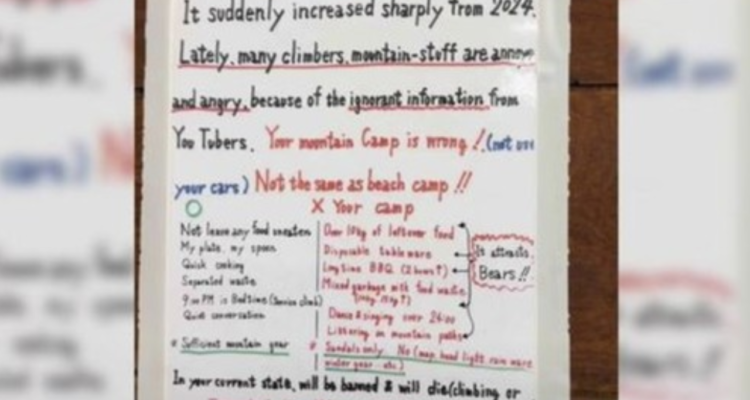 It suddenly increased sharply from 2024.
Lately, many climbers, mountain-stuff are annoye
and angry, because of the ignorant information from
You Tubers. Your mountain Camp is wrong !! (not use
your cars) Not the same as beach camp !!
○ X Your camp
Not leave any food uneaten
Over 10kg of leftover food
My plate, my spoon
Disposable tableware
It attracts
Quick cooking
Long time BBQ (2 hours↑)
Bears !!
Separated waste
Mixed garbage with food waste
9:00 PM is Bedtime (Senior climb)
Quiet conversation
Dance & singing over 24:00
Littering on mountain paths
Sufficient mountain gear
Sandals only. No (map, head light, rain ware
winter gear ... etc)
In your current state, will be banned & will die (climbing or